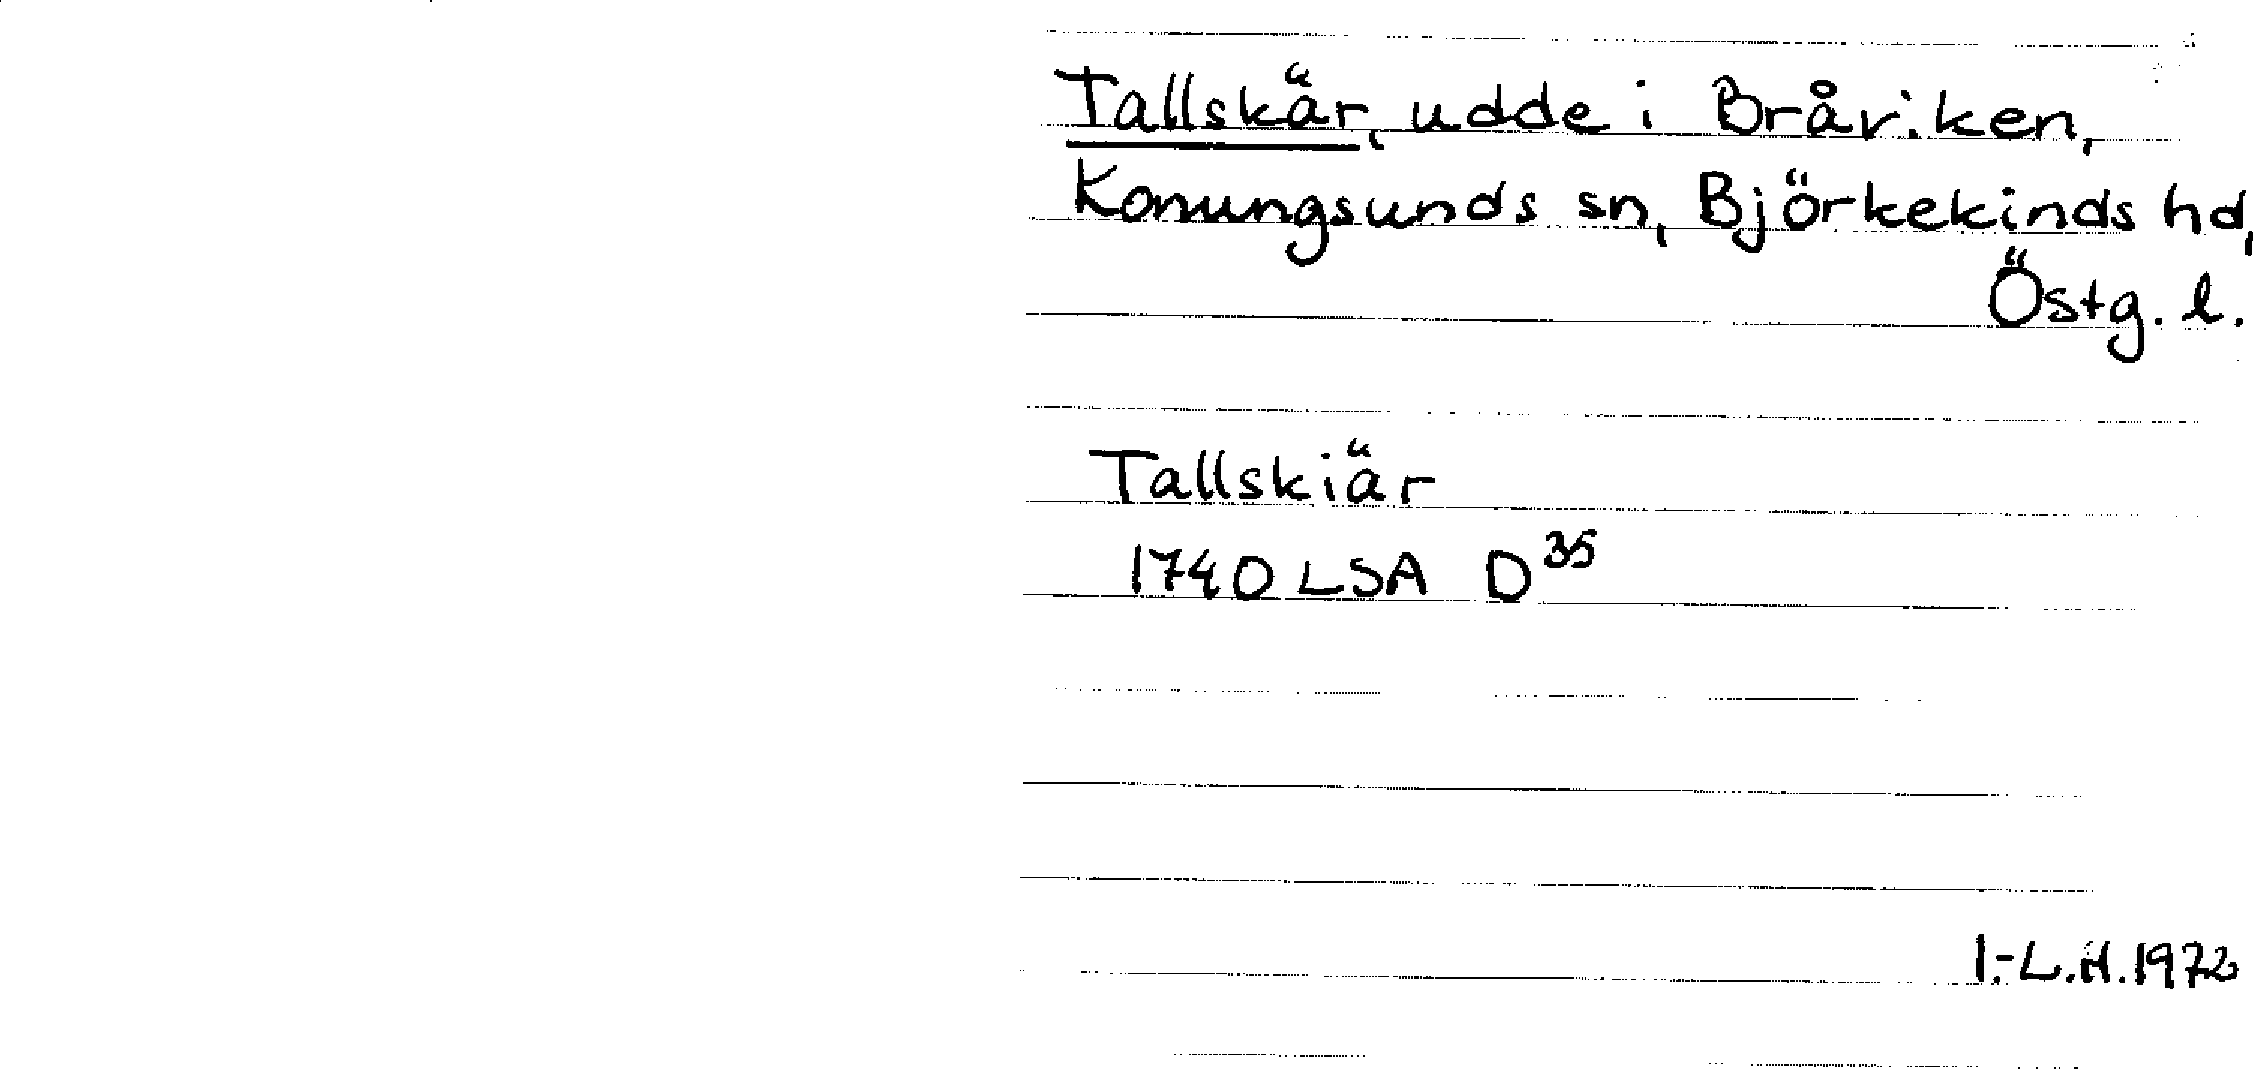 Tallskär, udde i Bråviken,
Konungsunds sn, Björkekinds hd,
Östg. l.
Tallskiär
1740 LSA D³⁵
I.-L.H. 1972